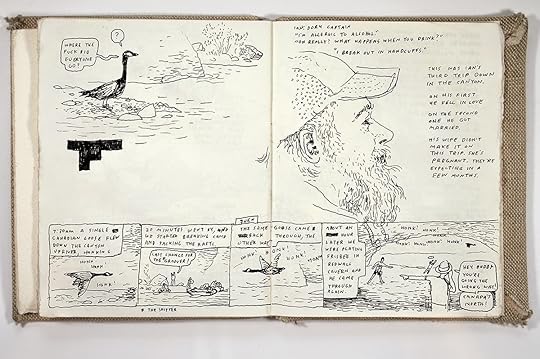 WHERE THE
FUCK DID
EVERYONE
GO?
?
IAN, DORY CAPTAIN
"I'M ALLERGIC TO ALCOHOL."
"OH REALLY? WHAT HAPPENS WHEN YOU DRINK?"
"I BREAK OUT IN HANDCUFFS."
THIS WAS IAN'S
THIRD TRIP DOWN
IN THE CANYON.
ON HIS FIRST
HE FELL IN LOVE
ON THE SECOND
ONE HE GOT
MARRIED.
HIS WIFE DIDN'T
MAKE IT ON
THIS TRIP. SHE'S
PREGNANT. THEY'RE
EXPECTING IN A
FEW MONTHS.
7:30AM A SINGLE
CANADIAN GOOSE FLEW
DOWN THE CANYON
UPRIVER, HONKING.
HONK!
HONK!
HONK!
20 MINUTES WENT BY, AND
WE STARTED BREAKING CAMP
AND PACKING THE RAFTS.
LAST CHANCE FOR
THE "GROOVER"!
* THE SHITTER
THEN
THE SAME GOOSE CAME
BACK THROUGH, THE
OTHER WAY.
HONK!
HONK!
HONK!
ABOUT AN
HOUR
LATER WE
WERE PLAYING
FRISBEE IN
REDWALL
CAVERN AND
HE CAME
THROUGH
AGAIN.
HONK!
HONK!
HONK!
HONK!
HONK!
HEY, BUDDY
YOU'RE
GOING THE
WRONG WAY!
CANADA'S
NORTH!